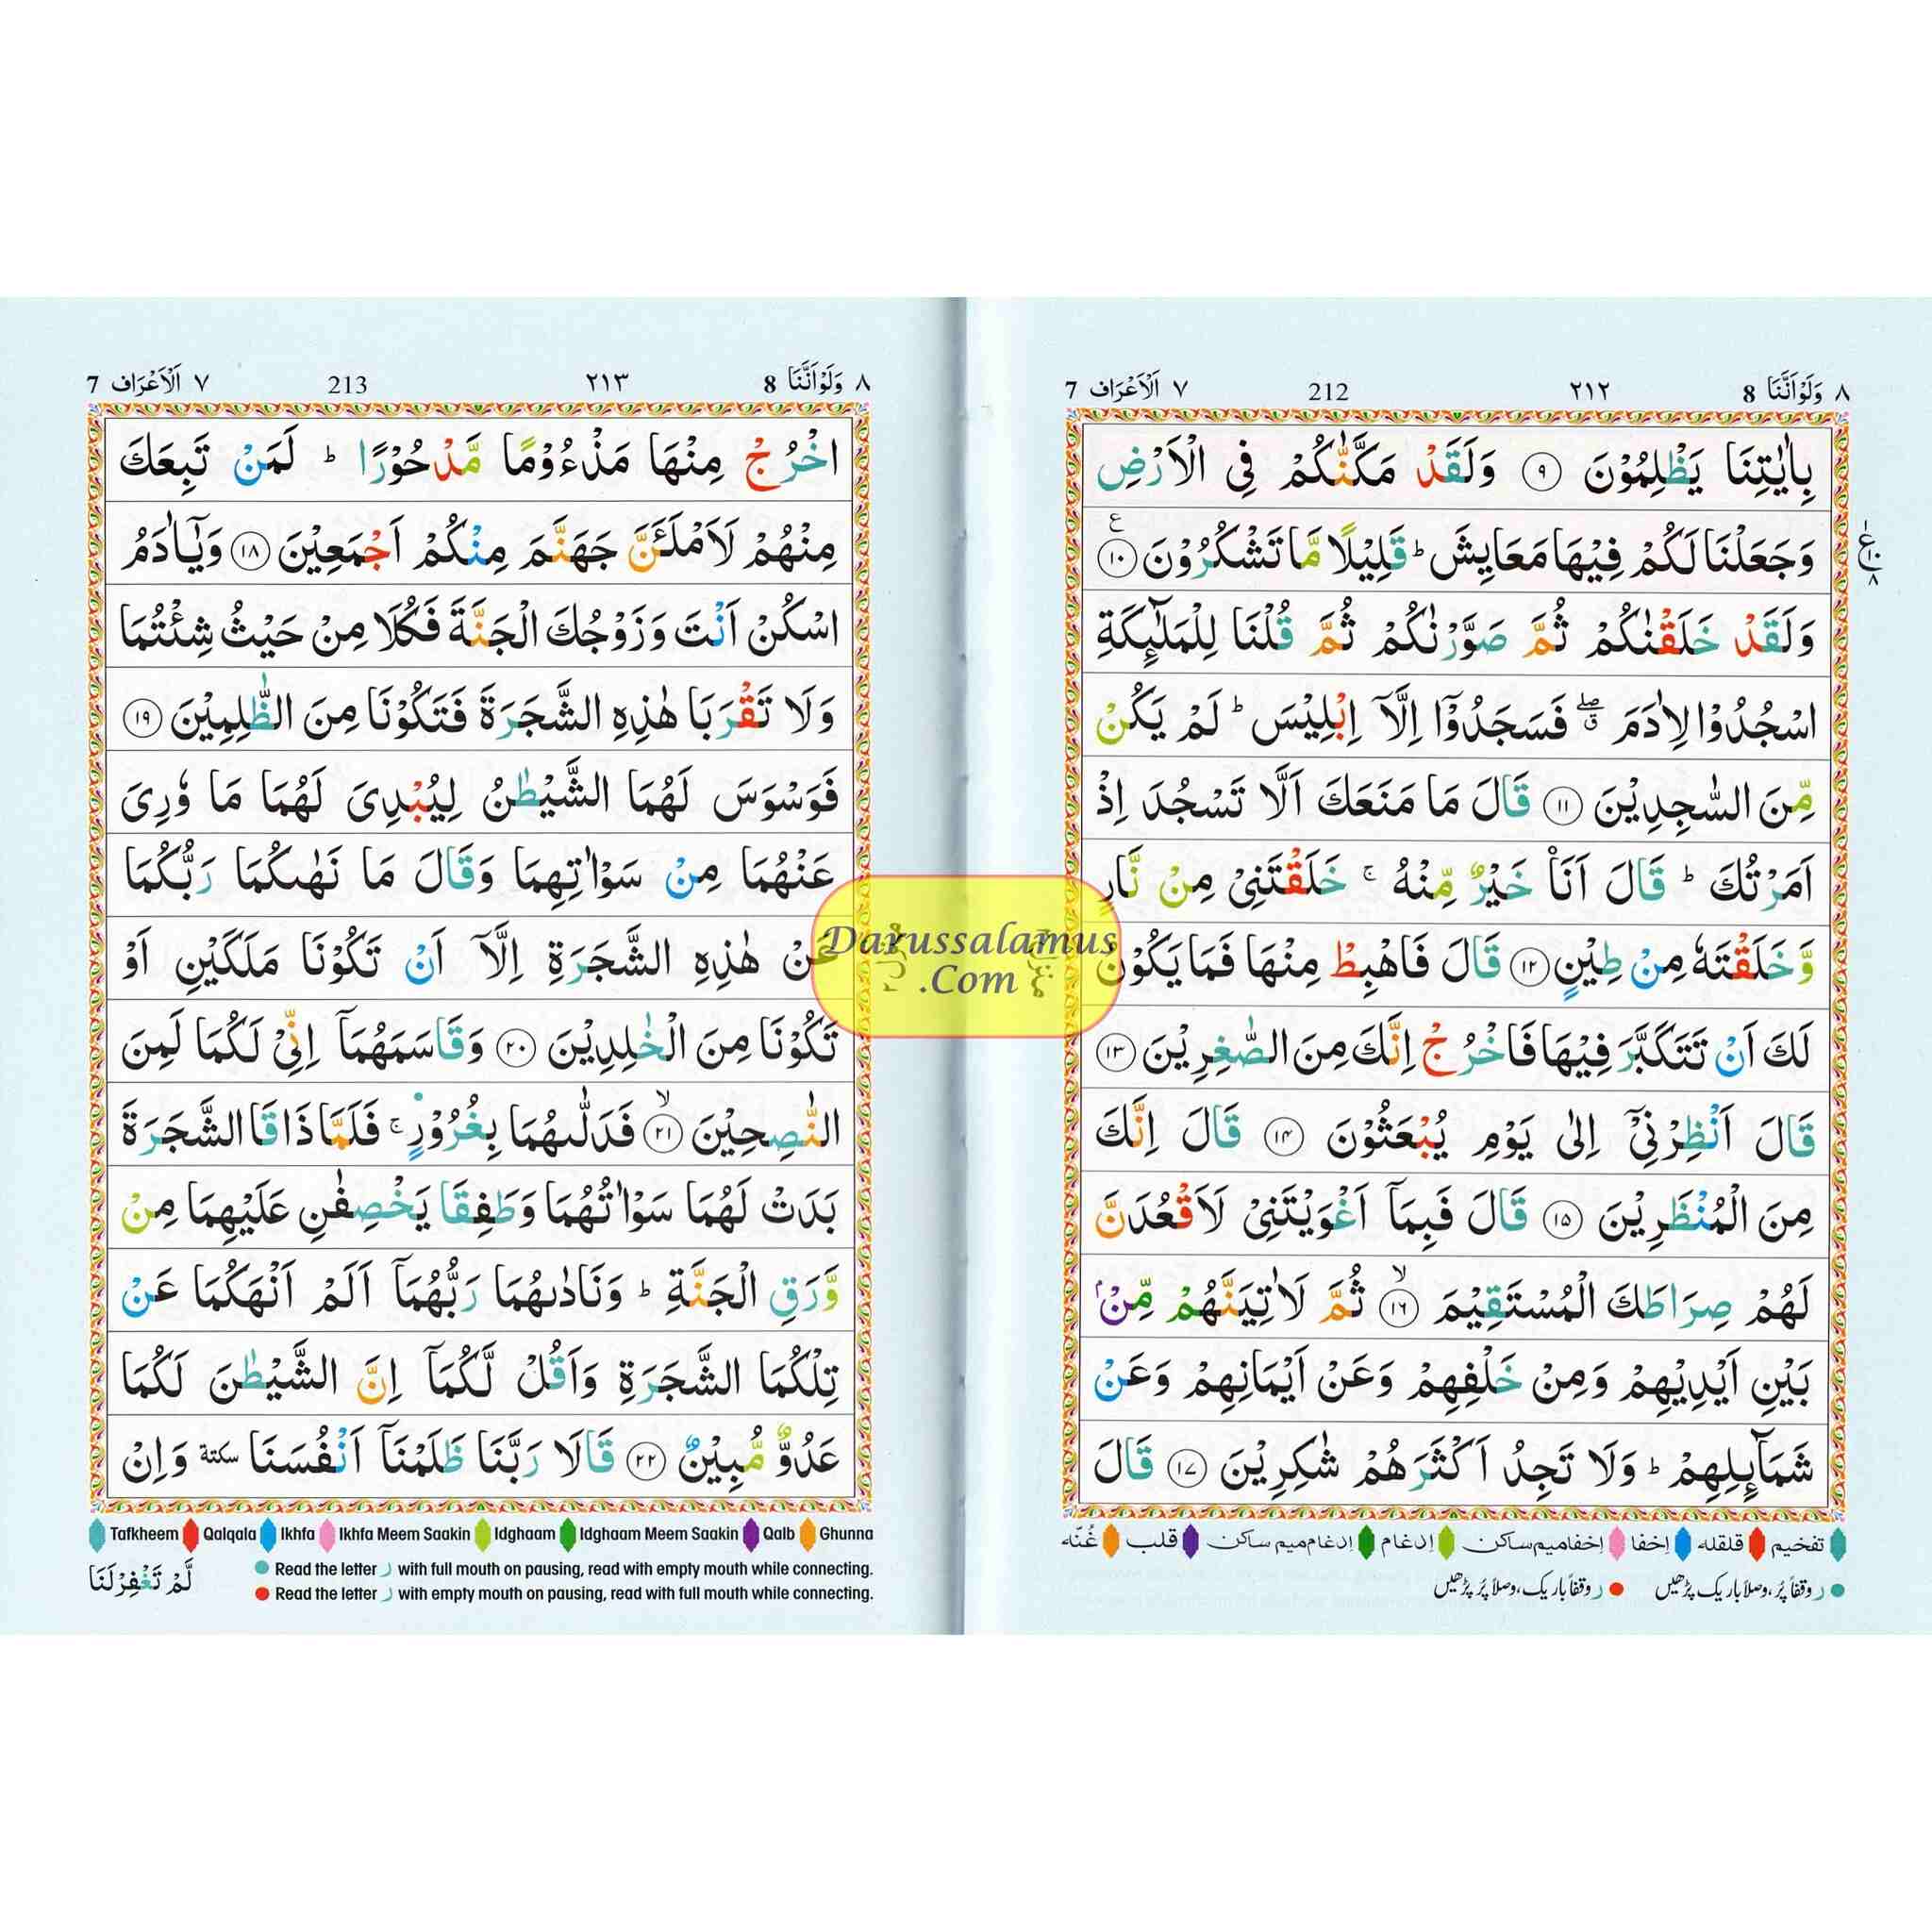 ٨ وَلَوْ اَنَّنَا 8 ٢١٢ 212 ٧ اَلْاَعْرَاف 7
بِاٰيٰتِنَا يَظْلِمُوْنَ ۝٩ وَلَقَدْ مَكَّنّٰكُمْ فِى الْاَرْضِ
وَجَعَلْنَا لَكُمْ فِيْهَا مَعَايِشَ ؕ قَلِيْلًا مَّا تَشْكُرُوْنَ ۝١٠
وَلَقَدْ خَلَقْنٰكُمْ ثُمَّ صَوَّرْنٰكُمْ ثُمَّ قُلْنَا لِلْمَلٰٓئِكَةِ
اسْجُدُوْا لِاٰدَمَ ۖق فَسَجَدُوْٓا اِلَّاۤ اِبْلِيْسَ ؕ لَمْ يَكُنْ
مِّنَ السّٰجِدِيْنَ ۝١١ قَالَ مَا مَنَعَكَ اَلَّا تَسْجُدَ اِذْ
اَمَرْتُكَ ؕ قَالَ اَنَا۠ خَيْرٌ مِّنْهُ ۚ خَلَقْتَنِىْ مِنْ نَّارٍ
وَّخَلَقْتَهٗ مِنْ طِيْنٍ ۝١٢ قَالَ فَاهْبِطْ مِنْهَا فَمَا يَكُوْنُ
لَكَ اَنْ تَتَكَبَّرَ فِيْهَا فَاخْرُجْ اِنَّكَ مِنَ الصّٰغِرِيْنَ ۝١٣
قَالَ اَنْظِرْنِىْۤ اِلٰى يَوْمِ يُبْعَثُوْنَ ۝١٤ قَالَ اِنَّكَ
مِنَ الْمُنْظَرِيْنَ ۝١٥ قَالَ فَبِمَاۤ اَغْوَيْتَنِىْ لَاَقْعُدَنَّ
لَهُمْ صِرَاطَكَ الْمُسْتَقِيْمَ ۙ۝١٦ ثُمَّ لَاٰتِيَنَّهُمْ مِّنْۢ
بَيْنِ اَيْدِيْهِمْ وَمِنْ خَلْفِهِمْ وَعَنْ اَيْمَانِهِمْ وَعَنْ
شَمَآئِلِهِمْ ؕ وَلَا تَجِدُ اَكْثَرَهُمْ شٰكِرِيْنَ ۝١٧ قَالَ
تفخیم قلقله اِخفا اِخفا میم ساکن اِدغام اِدغام میم ساکن قلب غُنّه
ر وقفاً پُر، وصلاً باریک پڑھیں ر وقفاً باریک، وصلاً پُر پڑھیں
٨ وَلَوْ اَنَّنَا 8 ٢١٣ 213 ٧ اَلْاَعْرَاف 7
اخْرُجْ مِنْهَا مَذْءُوْمًا مَّدْحُوْرًا ؕ لَمَنْ تَبِعَكَ
مِنْهُمْ لَاَمْلَـَٔنَّ جَهَنَّمَ مِنْكُمْ اَجْمَعِيْنَ ۝١٨ وَيٰٓاٰدَمُ
اسْكُنْ اَنْتَ وَزَوْجُكَ الْجَنَّةَ فَكُلَا مِنْ حَيْثُ شِئْتُمَا
وَلَا تَقْرَبَا هٰذِهِ الشَّجَرَةَ فَتَكُوْنَا مِنَ الظّٰلِمِيْنَ ۝١٩
فَوَسْوَسَ لَهُمَا الشَّيْطٰنُ لِيُبْدِىَ لَهُمَا مَا وٗرِىَ
عَنْهُمَا مِنْ سَوْاٰتِهِمَا وَقَالَ مَا نَهٰٮكُمَا رَبُّكُمَا
عَنْ هٰذِهِ الشَّجَرَةِ اِلَّاۤ اَنْ تَكُوْنَا مَلَكَيْنِ اَوْ
تَكُوْنَا مِنَ الْخٰلِدِيْنَ ۝٢٠ وَقَاسَمَهُمَاۤ اِنِّىْ لَكُمَا لَمِنَ
النّٰصِحِيْنَ ۙ۝٢١ فَدَلّٰٮهُمَا بِغُرُوْرٍ ۚ فَلَمَّا ذَاقَا الشَّجَرَةَ
بَدَتْ لَهُمَا سَوْاٰتُهُمَا وَطَفِقَا يَخْصِفٰنِ عَلَيْهِمَا مِنْ
وَّرَقِ الْجَنَّةِ ؕ وَنَادٰٮهُمَا رَبُّهُمَاۤ اَلَمْ اَنْهَكُمَا عَنْ
تِلْكُمَا الشَّجَرَةِ وَاَقُلْ لَّكُمَاۤ اِنَّ الشَّيْطٰنَ لَكُمَا
عَدُوٌّ مُّبِيْنٌ ۝٢٢ قَالَا رَبَّنَا ظَلَمْنَاۤ اَنْفُسَنَا سكتة وَاِنْ
Tafkheem Qalqala Ikhfa Ikhfa Meem Saakin Idghaam Idghaam Meem Saakin Qalb Ghunna
Read the letter ر with full mouth on pausing, read with empty mouth while connecting.
Read the letter ر with empty mouth on pausing, read with full mouth while connecting.
لَّمْ تَغْفِرْ لَنَا
Darussalamus
.Com